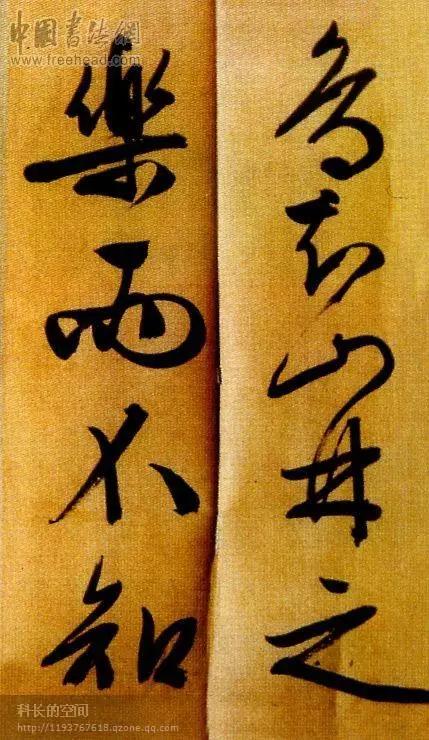 中國書法網
www.freehead.com
鳥知山林之
樂而不知
科长的空间
http://1193767618.qzone.qq.com